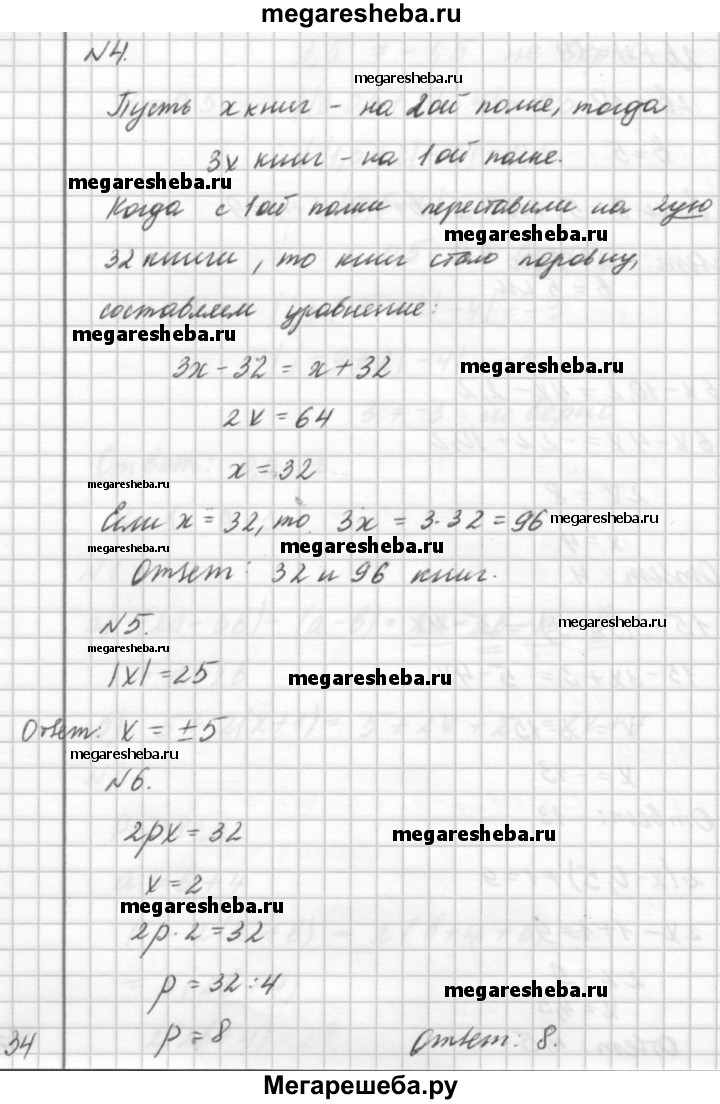 megaresheba.ru
№4.
megaresheba.ru
Пусть x книг - на 2ой полке, тогда
3x книг - на 1ой полке.
megaresheba.ru
Когда с 1ой полки переставили на 2ую
megaresheba.ru
32 книги, то книг стало поровну,
составляем уравнение:
megaresheba.ru
3x - 32 = x + 32
megaresheba.ru
2x = 64
x = 32
megaresheba.ru
Если x = 32, то 3x = 3·32 = 96
megaresheba.ru
megaresheba.ru
megaresheba.ru
Ответ: 32 и 96 книг.
№5.
megaresheba.ru
megaresheba.ru
|x| = 25
megaresheba.ru
Ответ: x = ±5
megaresheba.ru
№6.
2px = 32
megaresheba.ru
x = 2
megaresheba.ru
2p·2 = 32
p = 32:4
megaresheba.ru
p = 8
Ответ: 8.
34
Мегарешеба.ру